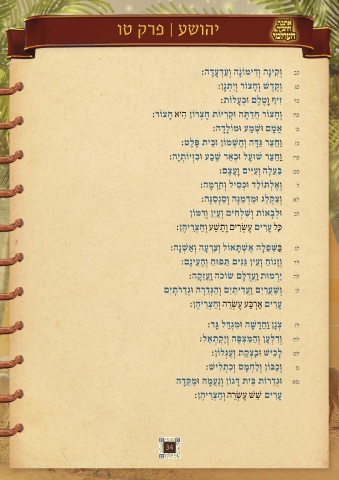 יהושע | פרק טו
כב וְקִינָה וְדִימוֹנָה וְעַדְעָדָה:
כג וְקֶדֶשׁ וְחָצוֹר וְיִתְנָן:
כד זִיף וָטֶלֶם וּבְעָלוֹת:
כה וְחָצוֹר חֲדַתָּה וּקְרִיּוֹת חֶצְרוֹן הִיא חָצוֹר:
כו אֲמָם וּשְׁמַע וּמוֹלָדָה:
כז וַחֲצַר גַּדָּה וְחֶשְׁמוֹן וּבֵית פָּלֶט:
כח וַחֲצַר שׁוּעָל וּבְאֵר שֶׁבַע וּבִזְיוֹתְיָה:
כט בַּעֲלָה וְעִיִּים וָעָצֶם:
ל וְאֶלְתּוֹלַד וּכְסִיל וְחָרְמָה:
לא וְצִקְלַג וּמַדְמַנָּה וְסַנְסַנָּה:
לב וּלְבָאוֹת וְשִׁלְחִים וְעַיִן וְרִמּוֹן
כָּל עָרִים עֶשְׂרִים וָתֵשַׁע וְחַצְרֵיהֶן:
לג בַּשְּׁפֵלָה אֶשְׁתָּאוֹל וְצָרְעָה וְאַשְׁנָה:
לד וְזָנוֹחַ וְעֵין גַּנִּים תַּפּוּחַ וְהָעֵינָם:
לה יַרְמוּת וַעֲדֻלָּם שׂוֹכֹה וַעֲזֵקָה:
לו וְשַׁעֲרַיִם וַעֲדִיתַיִם וְהַגְּדֵרָה וּגְדֵרֹתָיִם
עָרִים אַרְבַּע עֶשְׂרֵה וְחַצְרֵיהֶן:
לז צְנָן וַחֲדָשָׁה וּמִגְדַּל גָּד:
לח וְדִלְעָן וְהַמִּצְפֶּה וְיָקְתְאֵל:
לט לָכִישׁ וּבָצְקַת וְעֶגְלוֹן:
מ וְכַבּוֹן וְלַחְמָס וְכִתְלִישׁ:
מא וּגְדֵרוֹת בֵּית דָּגוֹן וְנַעֲמָה וּמַקֵּדָה
עָרִים שֵׁשׁ עֶשְׂרֵה וְחַצְרֵיהֶן:
34